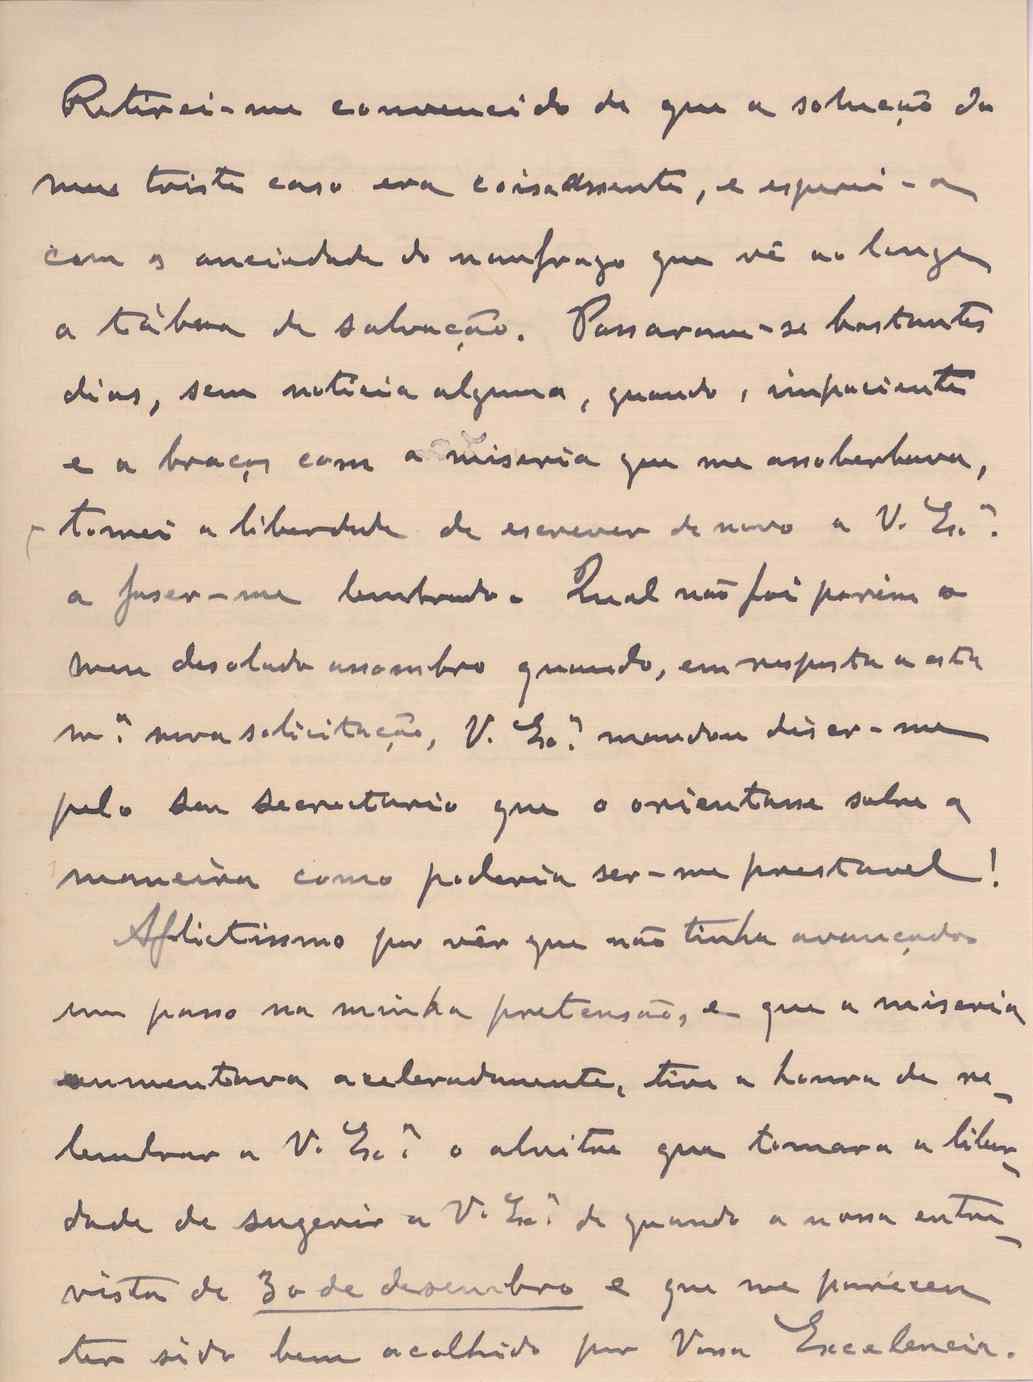 Retirei-me convencido de que a solução do
meu triste caso era coisa assente, e esperei-a
com a anciedade do naufrago que vê ao longe
a tábua de salvação. Passaram-se bastantes
dias, sem noticia alguma, quando, impaciente
e a braços com a miseria que me assoberbava,
tomei a liberdade de escrever de novo a V. Exª.
a faser-me lembrado. Qual não foi porém o
meu desolado assombro quando, em resposta a esta
mª. nova solicitação, V. Exª. mandou diser-me
pelo seu secretario que o orientasse sobre a
maneira como poderia ser-me prestavel!
Aflictissimo por vêr que não tinha avançado
um passo na minha pretensão, e que a miseria
aumentava aceleradamente, tive a honra de re-
lembrar a V. Exª. o alvitre que tomara a liber-
dade de sugerir a V. Exª. de quando a nossa entre-
vista de 30 de desembro e que me pareceu
ter sido bem acolhido por Vossa Excelencia.